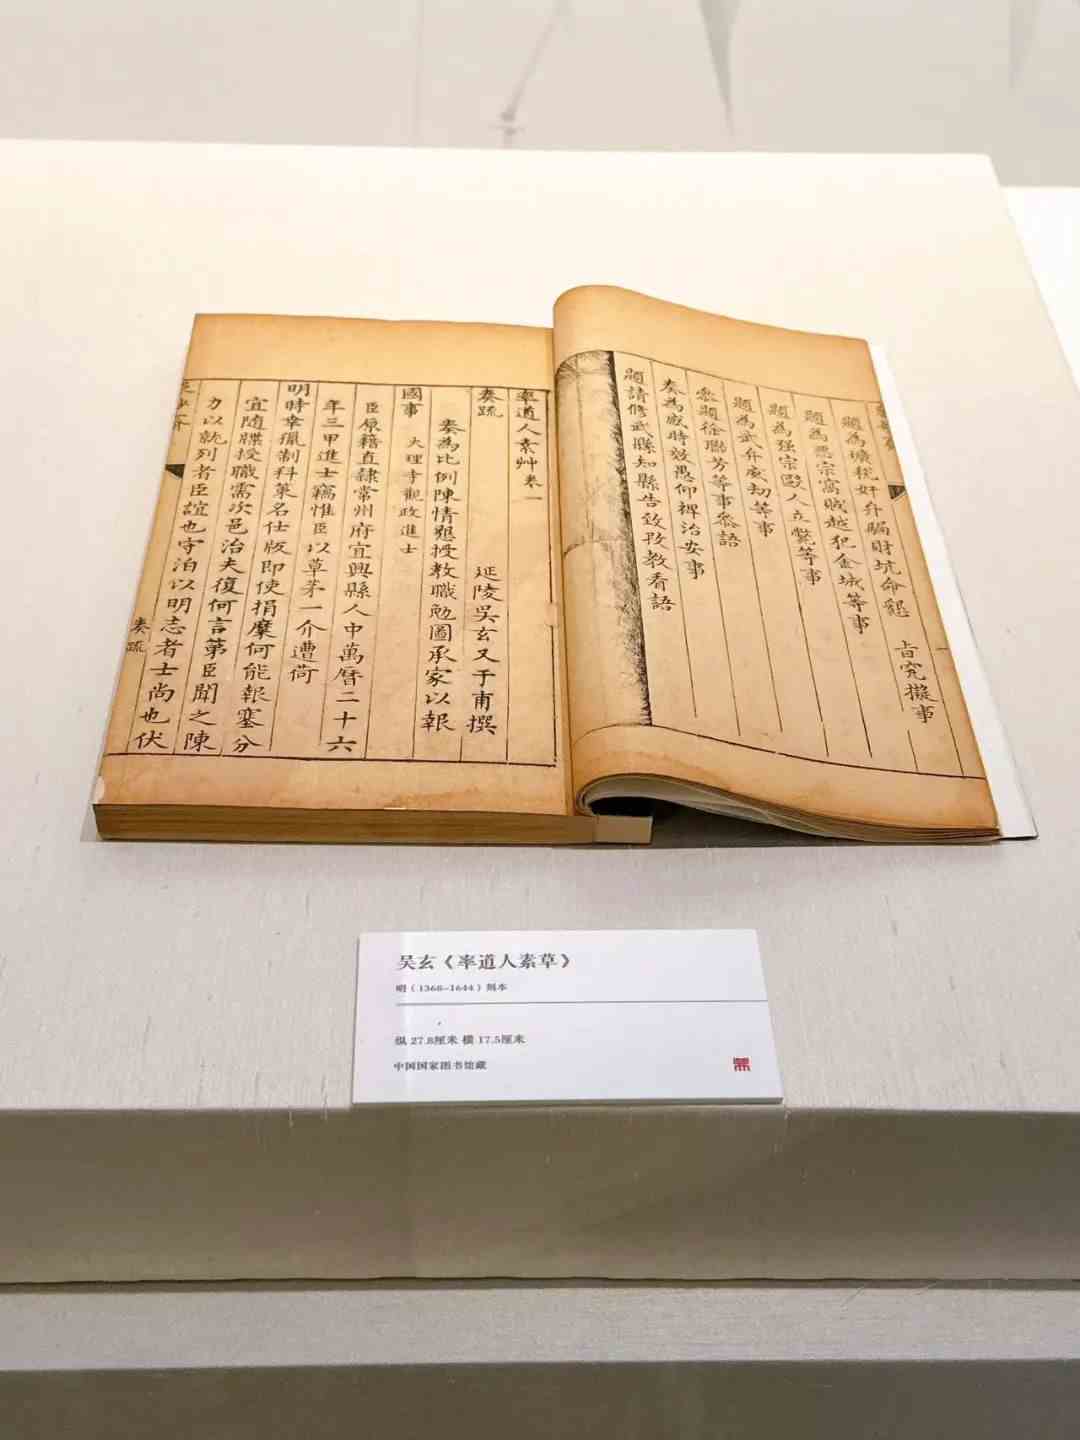 題為壙稅奸弁騙財坑命懇 㫖究擬事
題為惡宗窩賊越犯金城等事
題為强宗毆人立斃等事
題為武弁威劫等事
叅題徐聯芳等事叅語
奏為感時效愚仰裨治安事
題請修武縣知縣告致孜教看語
率道人素艸卷一
延陵吳玄又于甫撰
奏疏
奏為比例陳情懇授教職勉圖承家以報
國事 大理寺觀政進士
臣原籍直隸常州府宜興縣人中萬曆二十六
年三甲進士竊惟臣以草茅一介遭荷
明時幸獵制科菓名仕版即使捐糜何能報塞分
宜隨牒授職需次邑治夫復何言第臣聞之陳
力以就列者臣誼也守泊以明志者士尚也伏
奏疏
吴玄《率道人素草》
明（1368-1644）刻本
纵 27.8厘米 横 17.5厘米
中国国家图书馆藏